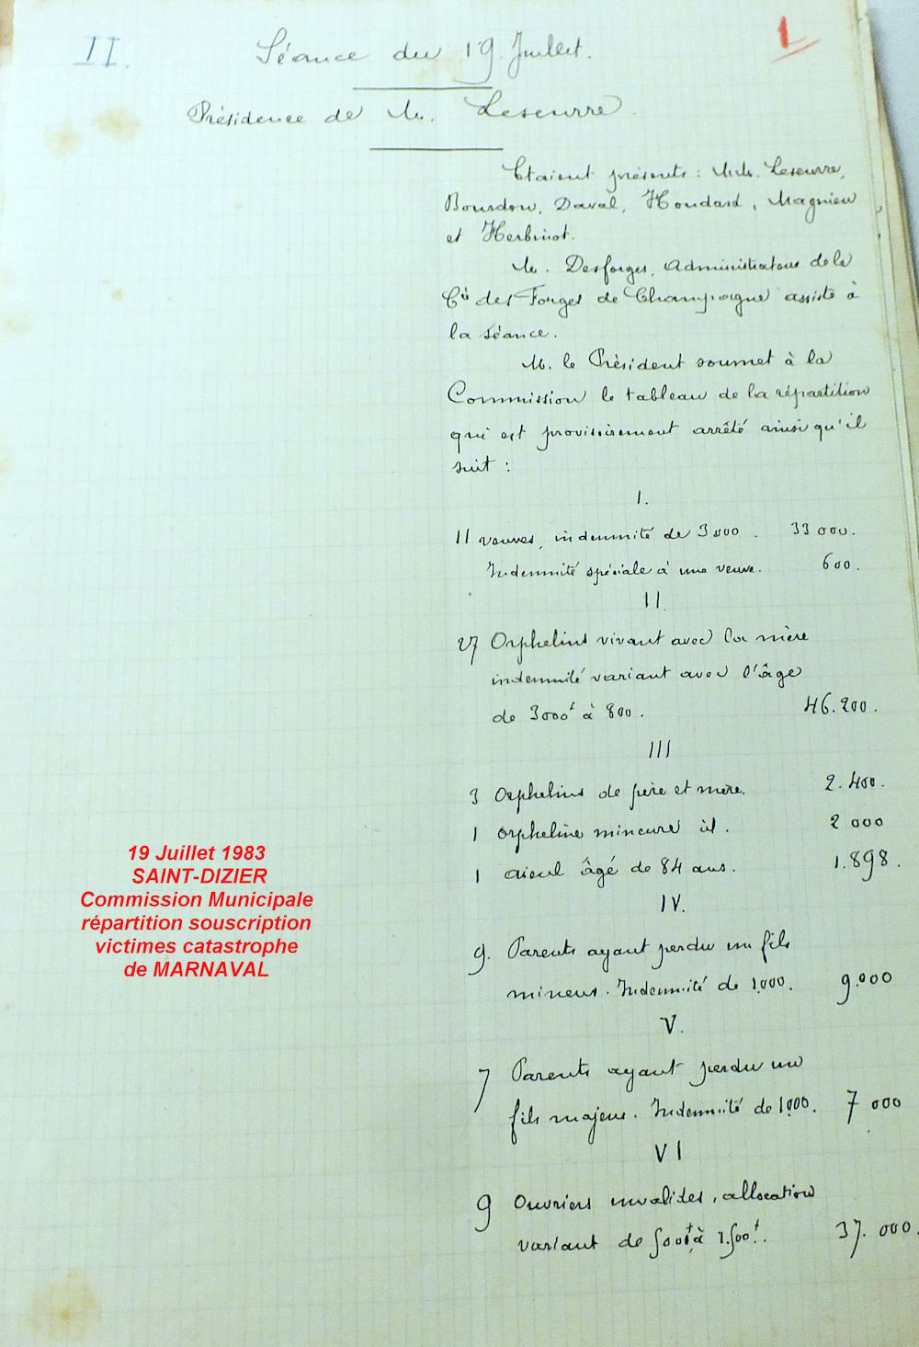 II.
1
Séance du 19 Juillet.
Présidence de M. Leseurre.
Etaient présents : M.M. Leseurre,
Bourdon, Daval, Houdard, Magnien
et Herbinot.
M. Desforges, Administrateur de la
Cie des Forges de Champagne assiste à
la séance.
M. le Président soumet à la
Commission le tableau de la répartition
qui est provisoirement arrêté ainsi qu'il
suit :
I.
11 veuves, indemnité de 3000. 33 000.
Indemnité spéciale à une veuve. 600.
II.
27 Orphelins vivant avec la mère
indemnité variant avec l'âge
de 3000f à 800. 46.200.
III
3 Orphelins de père et mère. 2.400.
1 orpheline mineure id. 2 000
1 aïeul âgé de 84 ans. 1.898.
IV.
9. Parents ayant perdu un fils
mineur. Indemnité de 1.000. 9.000
V.
7 Parents ayant perdu un
fils majeur. Indemnité de 1000. 7 000
VI
9 Ouvriers invalides, allocation
variant de 500f à 7.500f. 37.000.
19 Juillet 1983
SAINT-DIZIER
Commission Municipale
répartition souscription
victimes catastrophe
de MARNAVAL